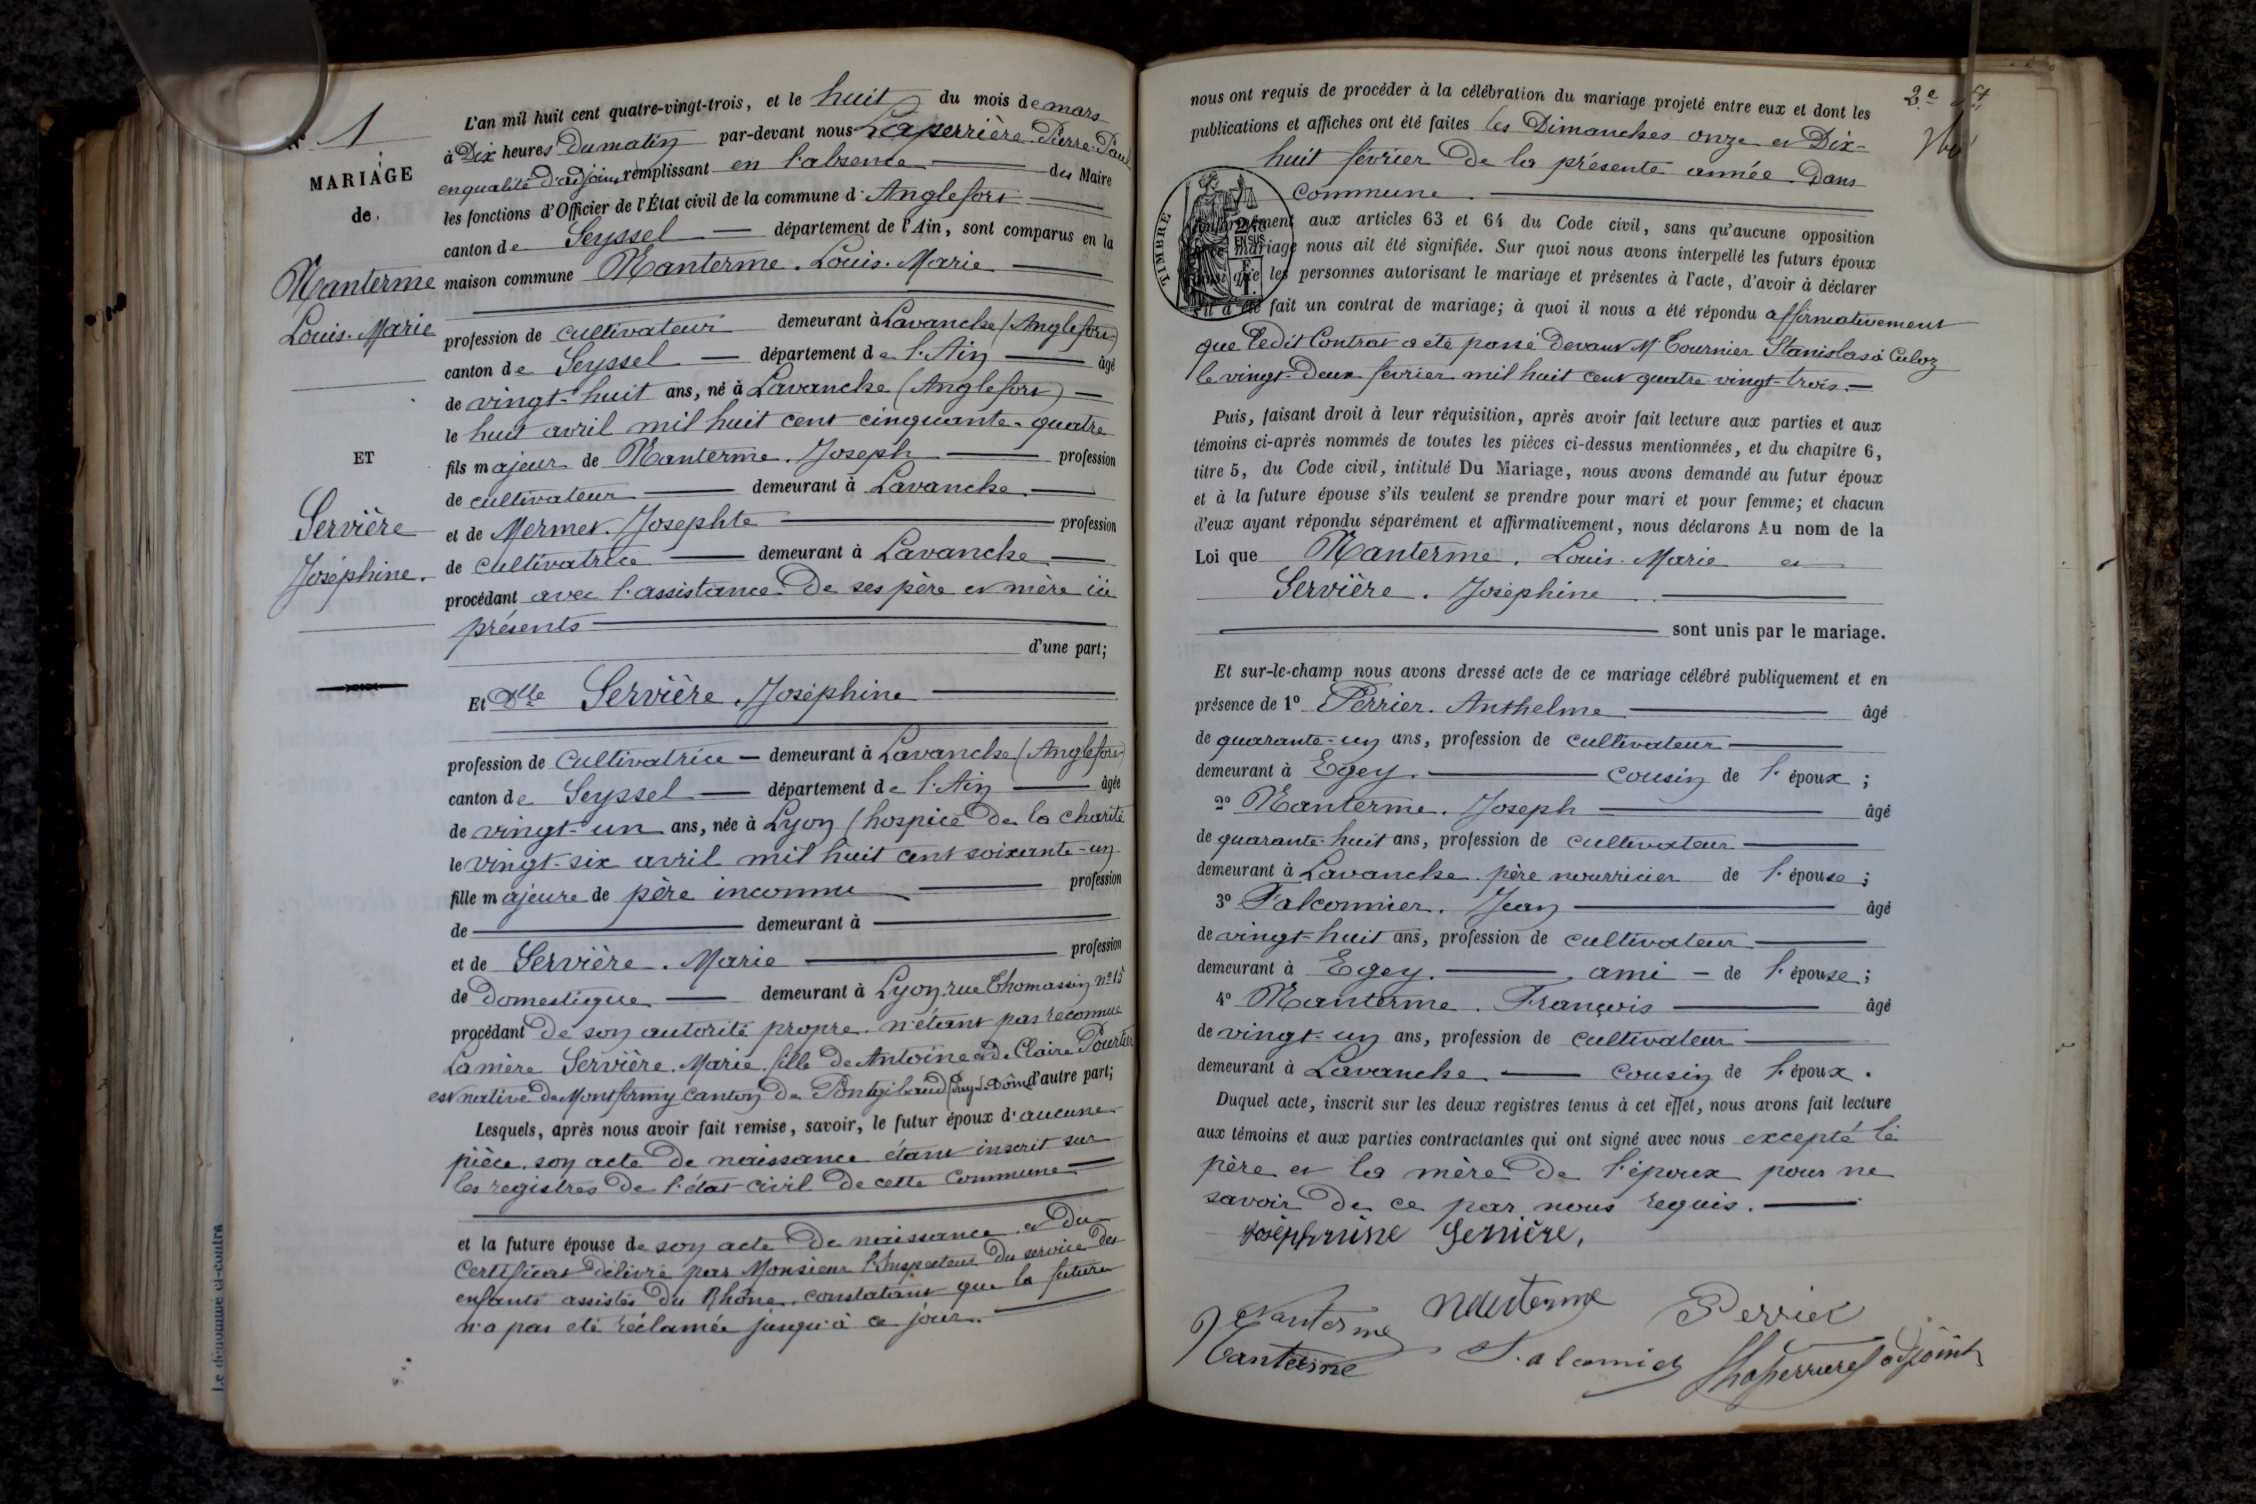 N° 1
MARIAGE
de
Nanterme
Louis. Marie
ET
Servière
Joséphine.
L'an mil huit cent quatre-vingt-trois, et le huit du mois de mars
à Dix heures Du matin par-devant nous Laperrière. Pierre. Paul
en qualité d'adjoint remplissant en l'absence du Maire
les fonctions d'Officier de l'État civil de la commune d' Anglefort
canton de Seyssel département de l'Ain, sont comparus en la
maison commune Nanterme. Louis. Marie
profession de cultivateur demeurant à Lavanche (Anglefort)
canton de Seyssel département de l'Ain âgé
de vingt-huit ans, né à Lavanche (Anglefort)
le huit avril mil huit cent cinquante-quatre
fils majeur de Nanterme. Joseph profession
de cultivateur demeurant à Lavanche
et de Mermet. Josephte profession
de cultivatrice demeurant à Lavanche
procédant avec l'assistance De ses père et mère ici
présents
d'une part;
Et Dlle Servière. Joséphine
profession de cultivatrice demeurant à Lavanche (Anglefort)
canton de Seyssel département de l'Ain âgée
de vingt-un ans, née à Lyon (hospice De la charité
le vingt-six avril mil huit cent soixante-un
fille majeure de père inconnu profession
de demeurant à
et de Servière. Marie profession
de Domestique demeurant à Lyon. rue Thomassin n° 15
procédant De son autorité propre. n'étant pas reconnue
La mère Servière. Marie. fille De Antoine et De Claire
est native De Montfermy canton De Pontgibaud (Puy-de-Dôme) d'autre part;
Lesquels, après nous avoir fait remise, savoir, le futur époux d'aucune
pièce. son acte De naissance étant inscrit sur
les registres De l'état-civil De cette Commune
et la future épouse de son acte De naissance et Du
Certificat Délivré par Monsieur l'Inspecteur Du service des
enfants assistés Du Rhône. constatant que la future
n'a pas été réclamée jusqu'à ce jour.
Le dénommé ci-contre
2e
nous ont requis de procéder à la célébration du mariage projeté entre eux et dont les
publications et affiches ont été faites les Dimanches onze et Dix-
huit février De la présente année Dans
commune
TIMBRE
conformément aux articles 63 et 64 du Code civil, sans qu'aucune opposition
mariage nous ait été signifiée. Sur quoi nous avons interpellé les futurs époux
que les personnes autorisant le mariage et présentes à l'acte, d'avoir à déclarer
s'il a été fait un contrat de mariage; à quoi il nous a été répondu affirmativement
que ledit Contrat a été passé Devant Me Tournier Stanislas à Culoz
le vingt-Deux février mil huit cent quatre-vingt-trois.
Puis, faisant droit à leur réquisition, après avoir fait lecture aux parties et aux
témoins ci-après nommés de toutes les pièces ci-dessus mentionnées, et du chapitre 6,
titre 5, du Code civil, intitulé Du Mariage, nous avons demandé au futur époux
et à la future épouse s'ils veulent se prendre pour mari et pour femme; et chacun
d'eux ayant répondu séparément et affirmativement, nous déclarons Au nom de la
Loi que Nanterme. Louis. Marie et
Servière. Joséphine
sont unis par le mariage.
Et sur-le-champ nous avons dressé acte de ce mariage célébré publiquement et en
présence de 1° Perrier. Anthelme âgé
de quarante-un ans, profession de cultivateur
demeurant à Egey. cousin de l'époux;
2° Nanterme. Joseph âgé
de quarante-huit ans, profession de cultivateur
demeurant à Lavanche père nourricier de l'épouse;
3° Falconnier. Jean âgé
de vingt-huit ans, profession de cultivateur
demeurant à Egey. ami de l'épouse;
4° Nanterme. François âgé
de vingt-un ans, profession de cultivateur
demeurant à Lavanche cousin de l'époux.
Duquel acte, inscrit sur les deux registres tenus à cet effet, nous avons fait lecture
aux témoins et aux parties contractantes qui ont signé avec nous excepté le
père et la mère De l'époux pour ne
savoir De ce par nous requis.
Joséphine Servière,
Nanterme Nanterme Perrier
Nanterme Laperrière adjoint